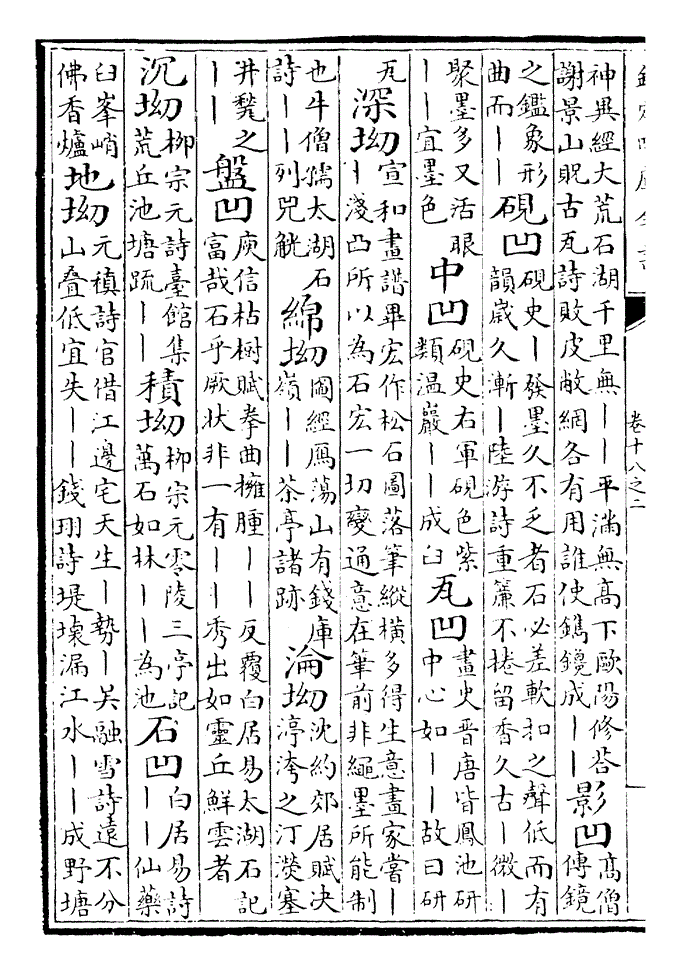 欽定四庫全書
卷十八之二
神異經大荒石湖千里無丨丨平滿無高下歐陽修荅謝景山貺古瓦詩敗皮敝網各有用誰使鐫鑱成丨丨影凹高僧傳鏡
之鑑象形曲而丨丨硯凹硯史丨發墨久不乏者石必差軟扣之聲低而有韻歲久漸丨陸游詩重簾不捲留香久古丨微丨
聚墨多又活眼丨丨宜墨色中凹硯史右軍硯色紫類温巖丨丨成臼瓦凹畫史晉唐皆鳳池研中心如丨丨故曰研
瓦深坳宣和畫譜畢宏作松石圖落筆縱橫多得生意畫家嘗丨丨淺凸所以為石宏一切變通意在筆前非繩墨所能制
也牛僧孺太湖石詩丨丨列兕觥綿坳圖經鴈蕩山有錢庫嶺丨丨茶亭諸跡淪坳沈約郊居賦决渟洿之汀濙塞
井甃之丨丨盤凹庾信枯樹賦拳曲擁腫丨丨反覆白居易太湖石記富哉石乎厥狀非一有丨丨秀出如靈丘鮮雲者
沉坳柳宗元詩臺館集荒丘池塘疏丨丨積坳柳宗元零陵三亭記萬石如林丨丨為池石凹白居易詩丨丨仙藥
臼峯峭佛香爐地坳元稹詩官借江邊宅天生丨勢丨吳融雪詩遠不分山疊低宜失丨丨錢珝詩堤壞漏江水丨丨成野塘